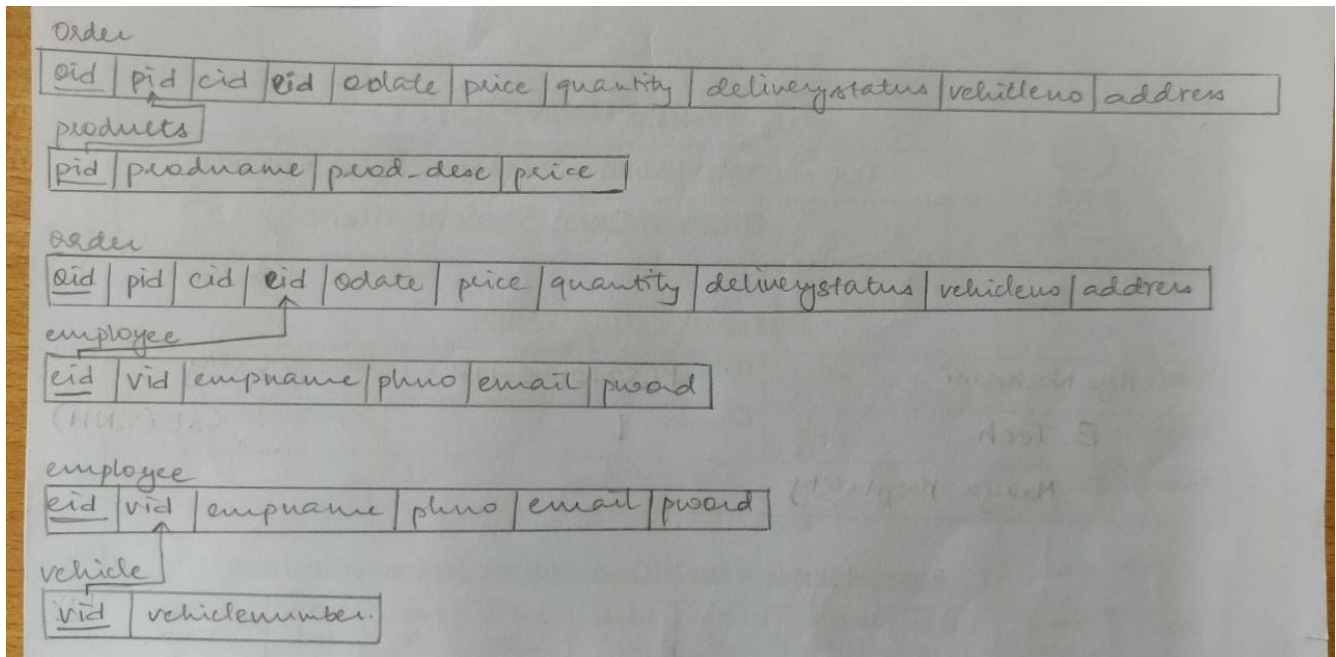 order
oid pid cid eid odate price quantity deliverystatus vehilleno address
products
pid prodname prod_desc price
order
oid pid cid eid odate price quantity deliverystatus vehicleno address
employee
eid vid empname phno email pword
employee
eid vid empname phno email pword
vehicle
vid vehiclenumber.